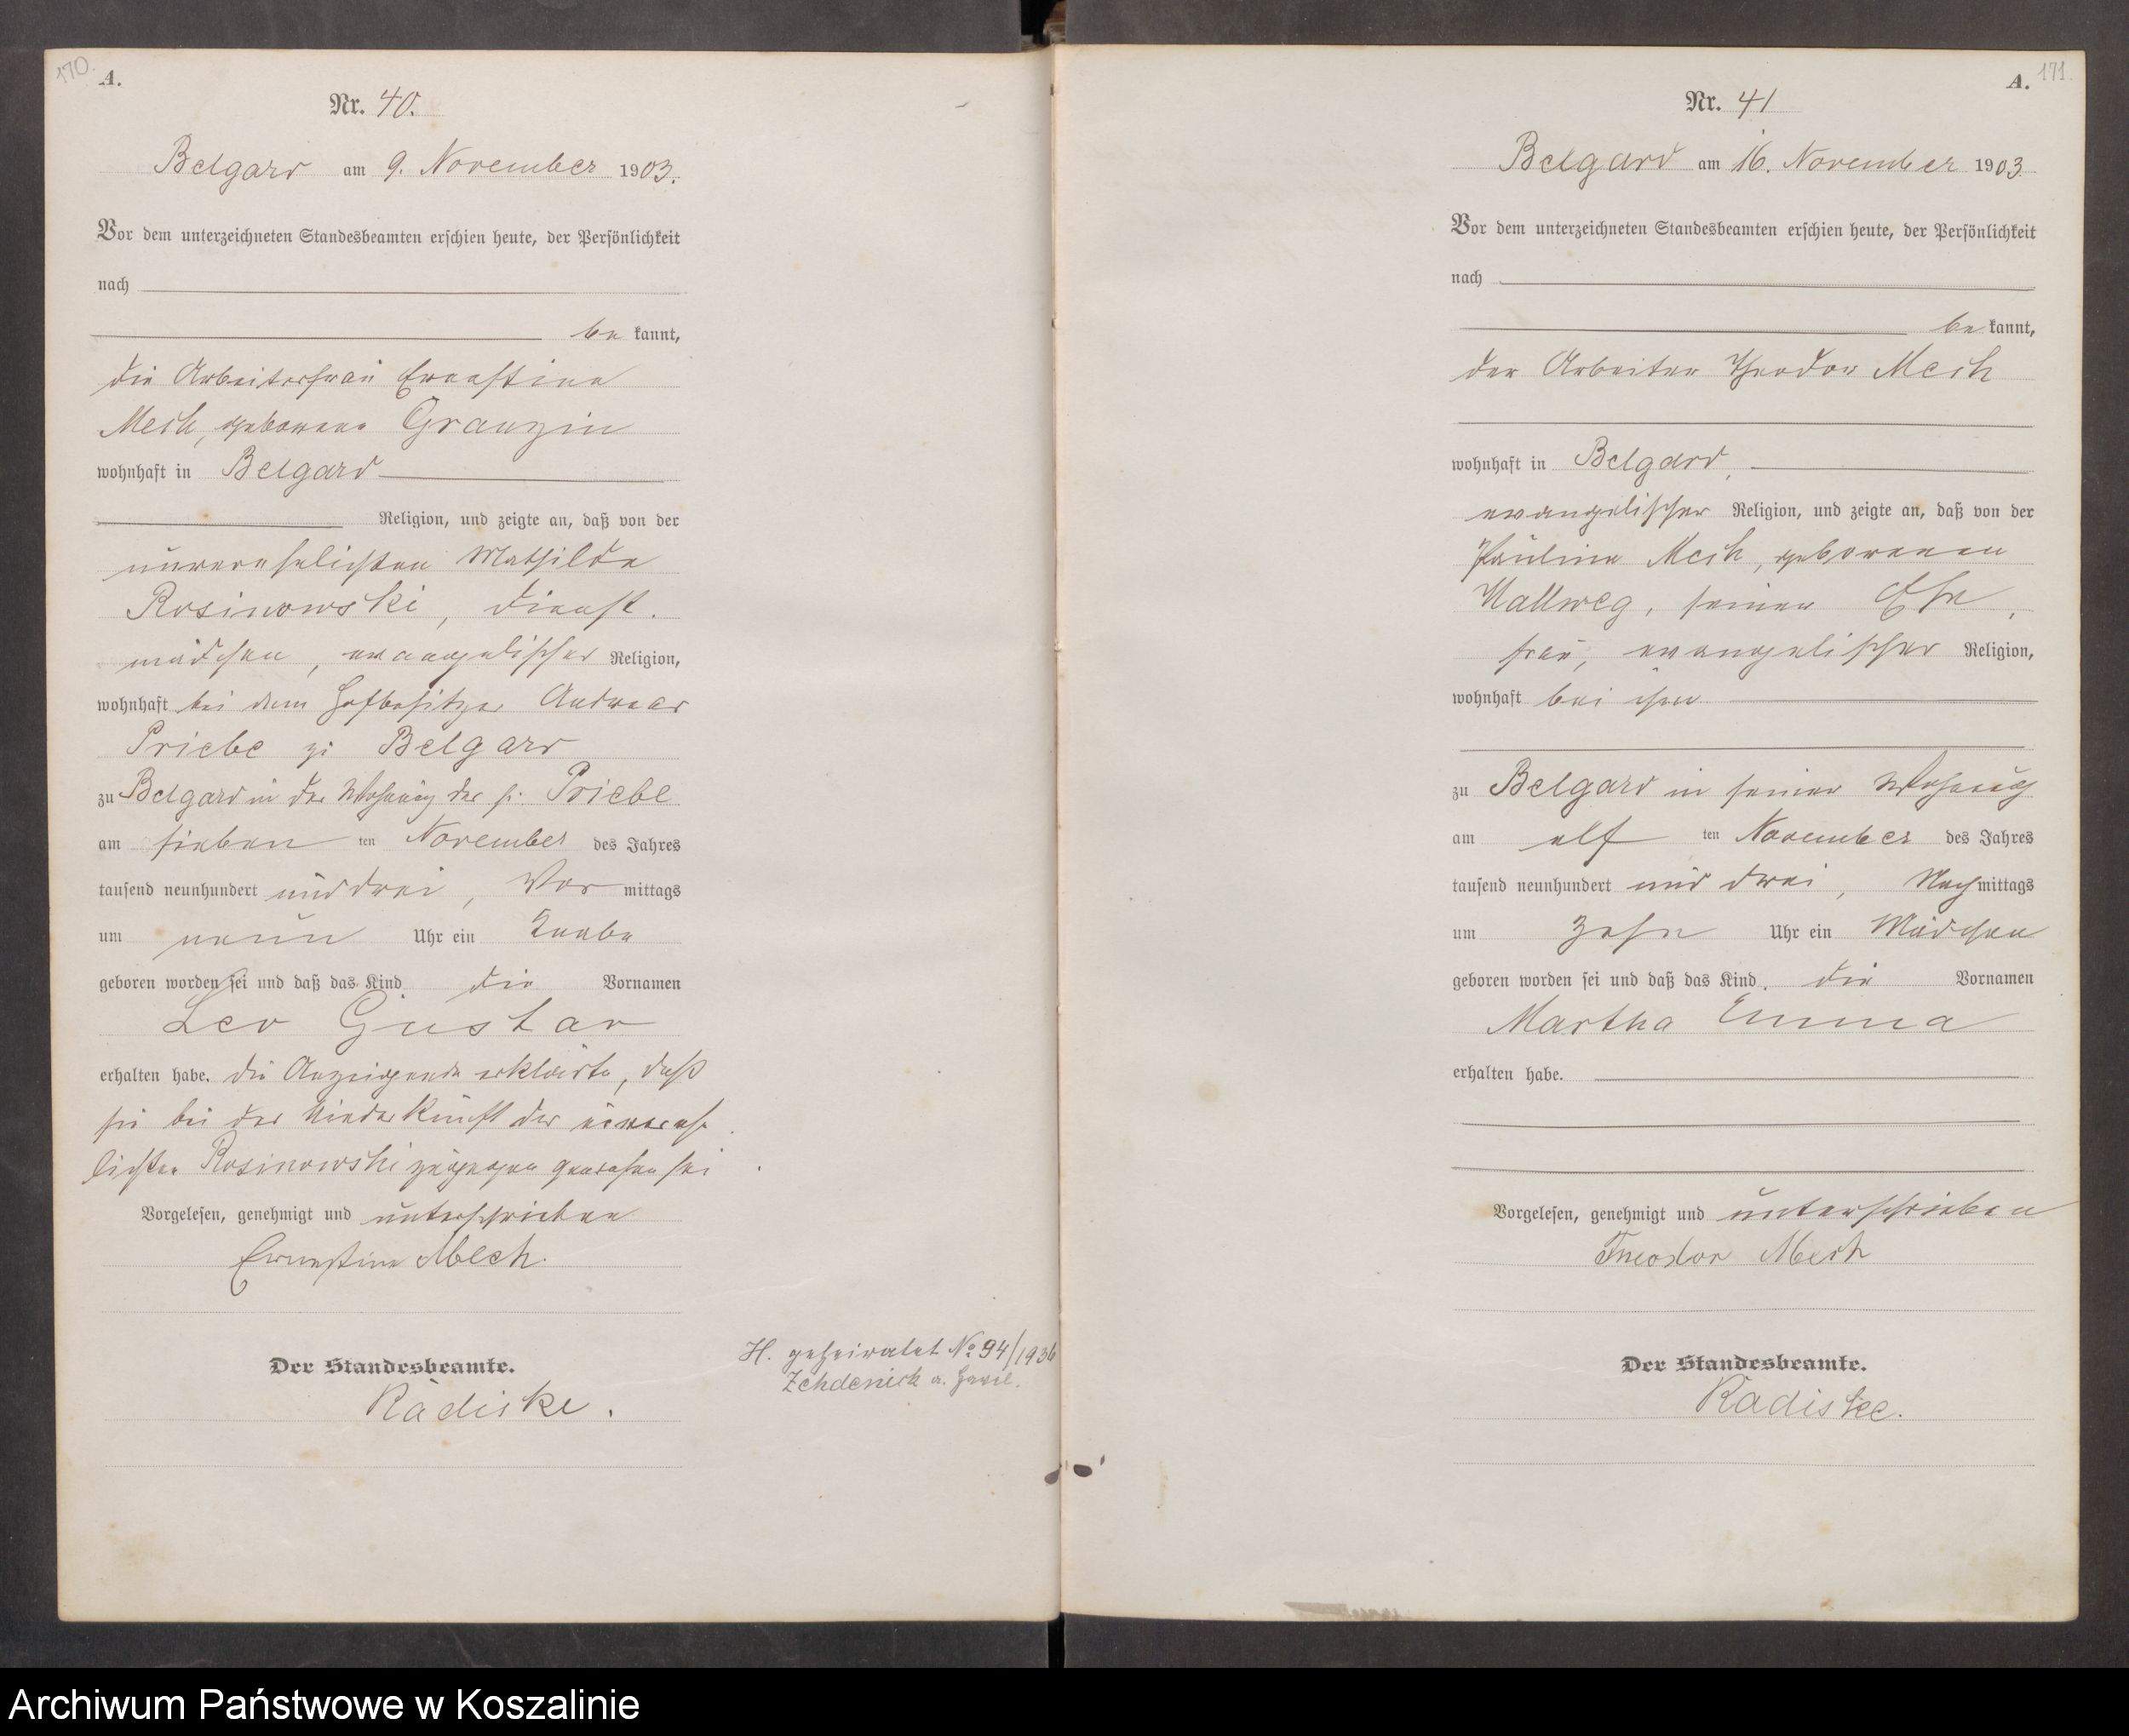 170.
A.
Nr. 40.
Belgard am 9. November 1903.
Vor dem unterzeichneten Standesbeamten erschien heute, der Persönlichkeit
nach
be kannt,
die Arbeiterfrau Ernestine
Mech, geborene Granzin
wohnhaft in Belgard
Religion, und zeigte an, daß von der
unverehelichten Mathilde
Rosinowski, Dienst-
mädchen, evangelischer Religion,
wohnhaft bei dem Hofbesitzer Andreas
Priebe zu Belgard
zu Belgard in der Wohnung des p. Priebe
am sieben ten November des Jahres
tausend neunhundert und drei, Vor mittags
um neun Uhr ein Knabe
geboren worden sei und daß das Kind die Vornamen
Leo Gustav
erhalten habe. Die Anzeigende erklärte, daß
sie bei der Niederkunft der unvereh-
lichten Rosinowski zugegen gewesen sei
Vorgelesen, genehmigt und unterschrieben
Ernestine Mech.
Der Standesbeamte.
Radiske.
H. geheiratet No 94/1936
Zehdenick a. Havel.
171.
A.
Nr. 41
Belgard am 16. November 1903
Vor dem unterzeichneten Standesbeamten erschien heute, der Persönlichkeit
nach
be kannt,
der Arbeiter Theodor Mech
wohnhaft in Belgard,
evangelischer Religion, und zeigte an, daß von der
Pauline Mech, geborenen
Hallweg, seiner Ehe-
frau, evangelischer Religion,
wohnhaft bei ihm
zu Belgard in seiner Wohnung
am elf ten November des Jahres
tausend neunhundert und drei, Nach mittags
um zehn Uhr ein Mädchen
geboren worden sei und daß das Kind die Vornamen
Martha Emma
erhalten habe.
Vorgelesen, genehmigt und unterschrieben
Theodor Mech
Der Standesbeamte.
Radiske.
Archiwum Państwowe w Koszalinie